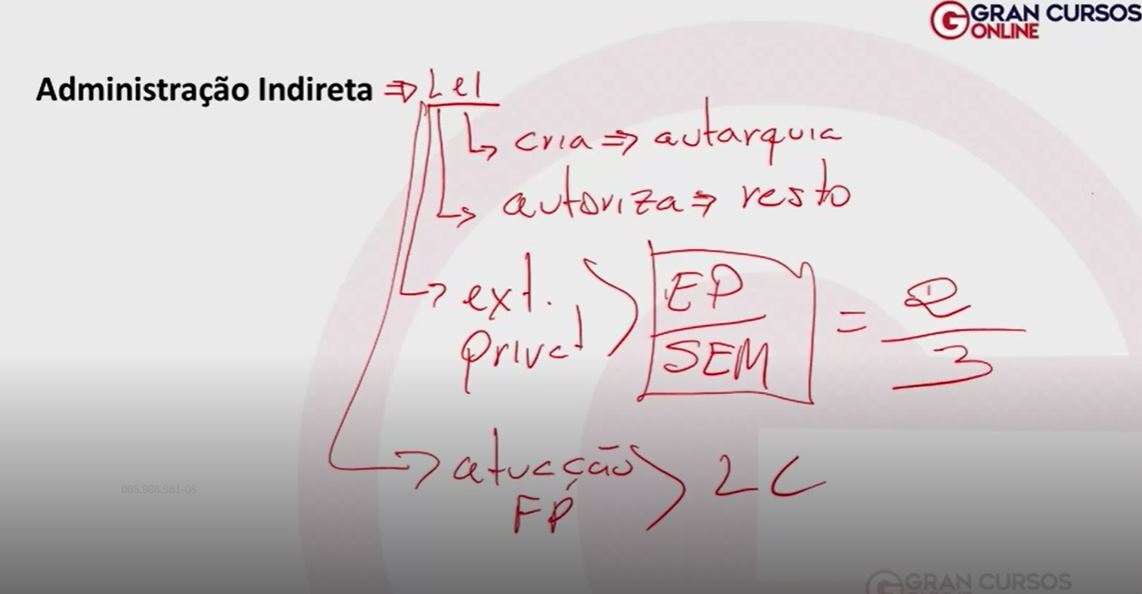 GRAN CURSOS
ONLINE
Administração Indireta ⇒ Lei
↳ cria ⇒ autarquia
↳ autoriza ⇒ resto
→ ext. EP
privat SEM = 2/3
→ atuação 2C
FP
005.986.981-08
GRAN CURSOS